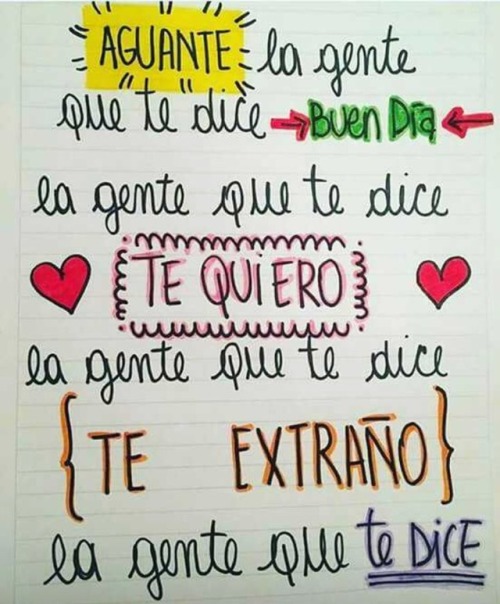 AGUANTE la gente
que te dice BUEN Día
la gente que te dice
TE QUiERO
la gente que te dice
{TE EXTRAÑO}
la gente que te DiCE